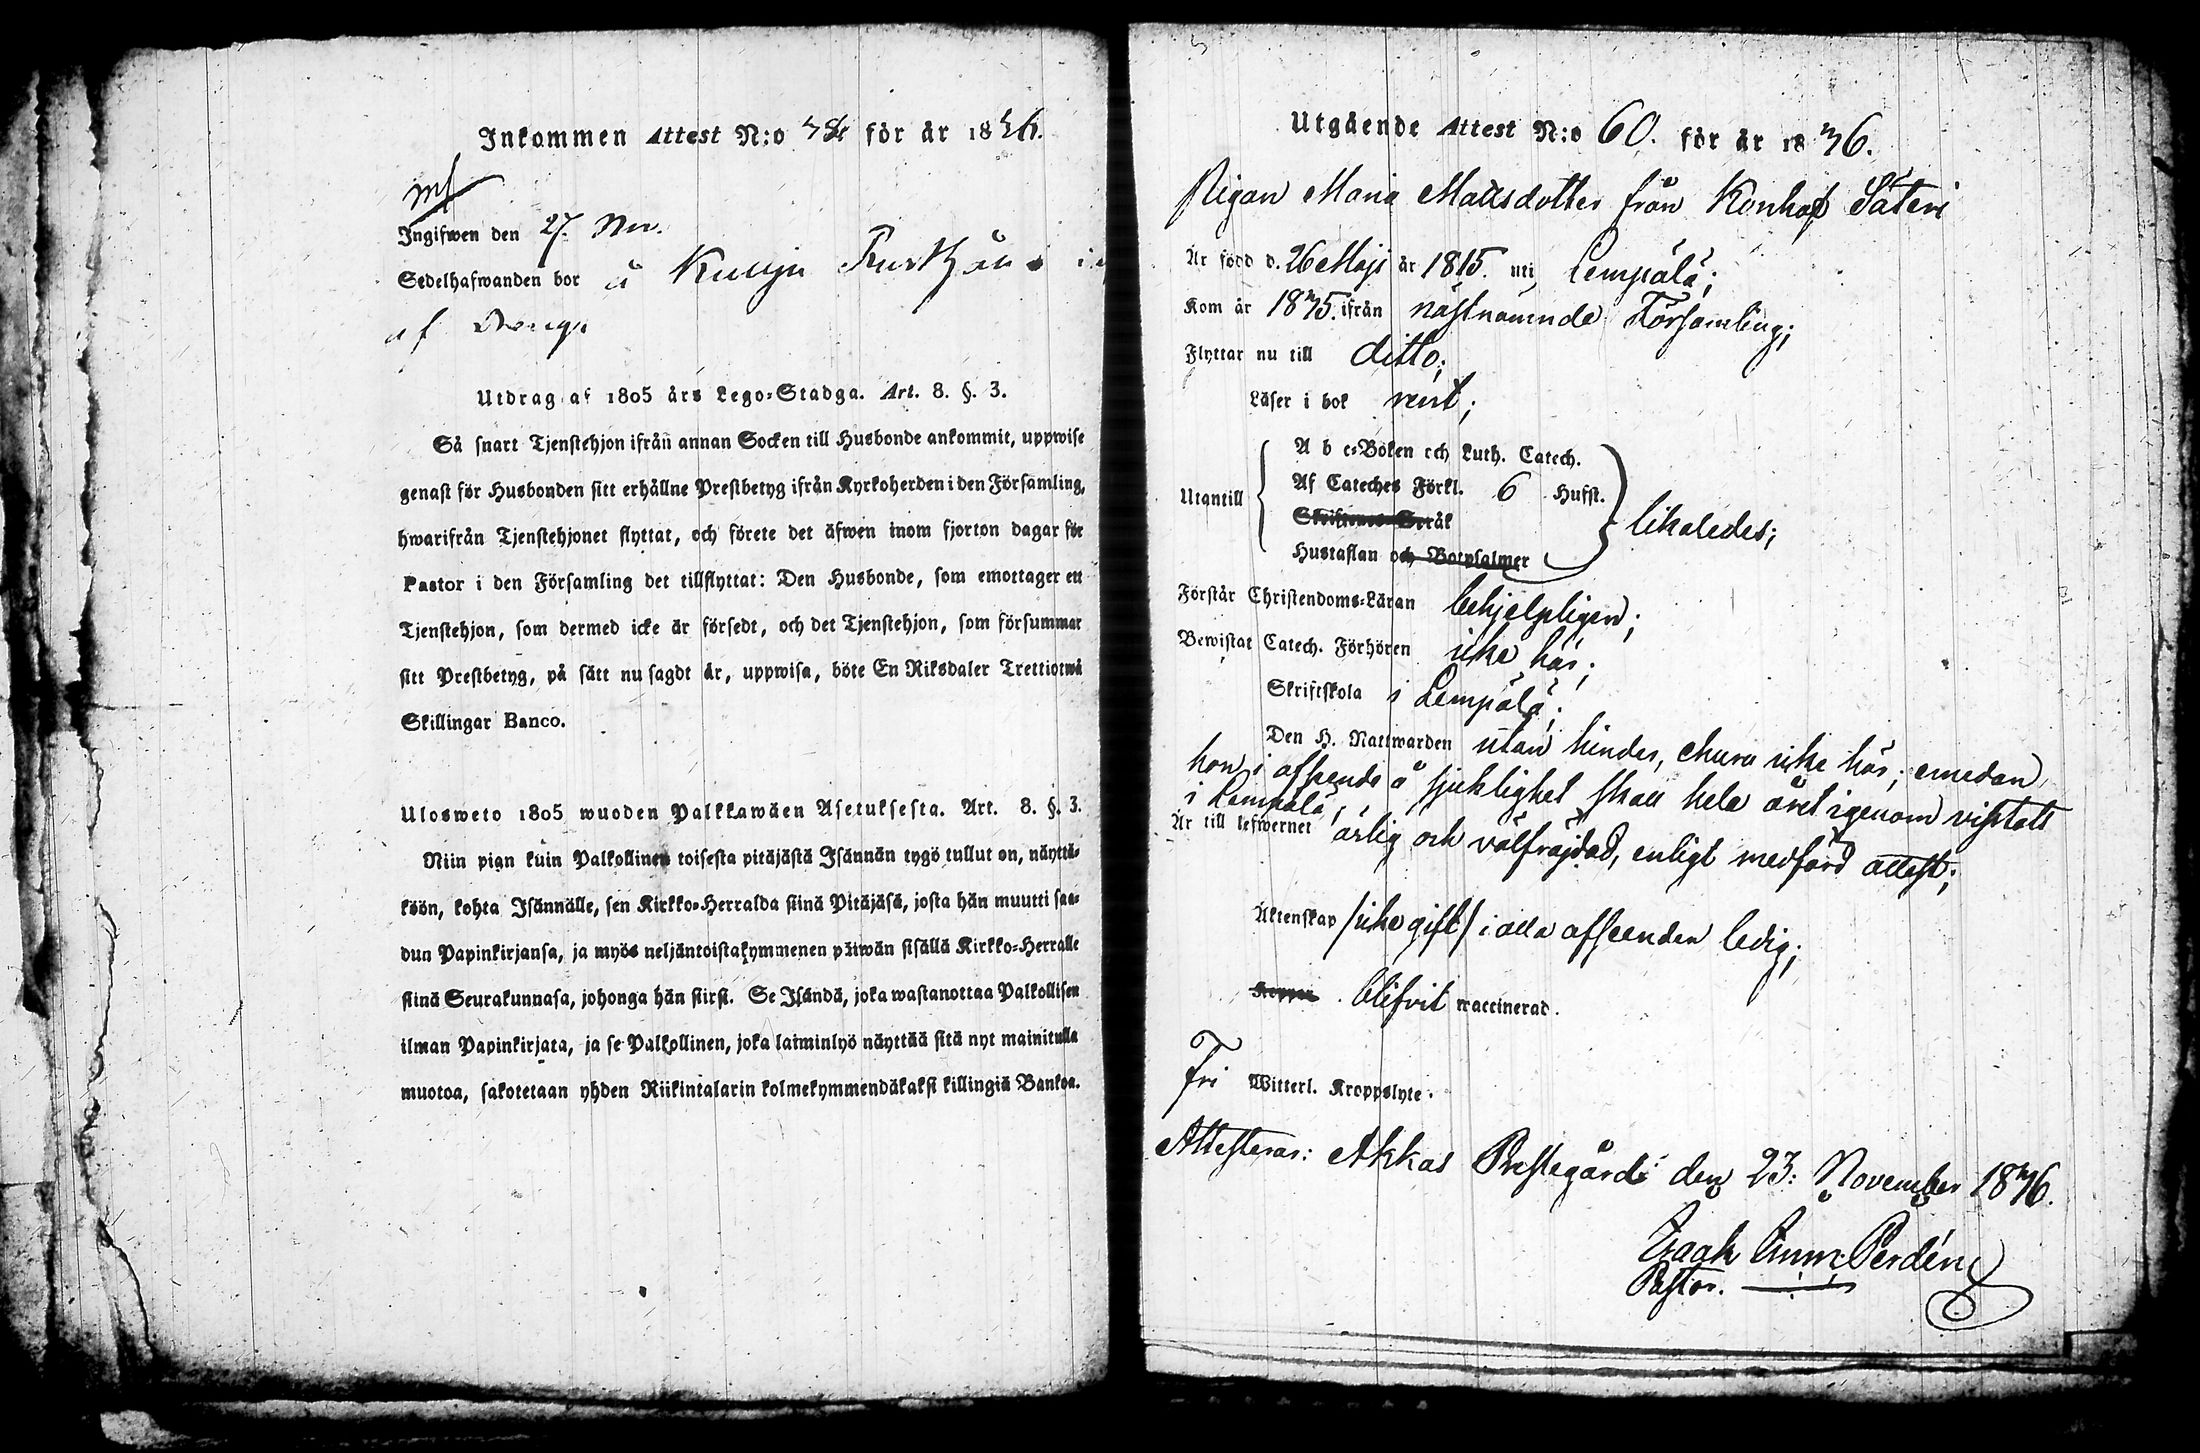 Inkommen Attest N:o för år 18
Ingifwen den 27. Nov.
Sedelhafwanden bor å
af
Utdrag af 1805 års Lego-Stadga. Art. 8. §. 3.
Så snart Tjenstehjon ifrån annan Socken till Husbonde ankommit, uppwise
genast för Husbonden sitt erhållne Prestbetyg ifrån Kyrkoherden i den Församling,
hwarifrån Tjenstehjonet flyttat, och förete det äfwen inom fjorton dagar för
Pastor i den Församling det tillflyttat: Den Husbonde, som emottager ett
Tjenstehjon, som dermed icke är försedt, och det Tjenstehjon, som försummar
sitt Prestbetyg, på sätt nu sagdt är, uppwisa, böte En Riksdaler Trettiotwå
Skillingar Banco.
Ulosweto 1805 wuoden Palkkawäen Asetuksesta. Art. 8. §. 3.
Niin pian kuin Palkollinen toisesta pitäjästä Isännän tygö tullut on, näyttä-
köön, kohta Isännälle, sen Kirkko-Herralda siinä Pitäjäsä, josta hän muutti saa-
dun Papinkirjansa, ja myös neljäntoistakymmenen päiwän sisällä Kirkko-Herralle
siinä Seurakunnasa, johonga hän siirsi. Se Isändä, joka wastanottaa Palkollisen
ilman Papinkirjata, ja se Palkollinen, joka laiminlyö näyttää sitä nyt mainitulla
muotoa, sakotetaan yhden Riikintalarin kolmekymmendäkaksi killingiä Bankoa.
Utgående Attest N:o 60. för år 1876.
Pigan Maria Mattsdotter från Säteri
Är född d. 26 Maji år 1815. uti Lempälä;
Kom år 1875. ifrån nästnämnde Församling;
Flyttar nu till ditto;
Läser i bok rent;
Utantill
A b c-Boken och Luth. Catech.
Af Cateches Förkl. 6 Hufst.
Skriftenes Språk
Hustaflan och Botpsalmer
likaledes;
Förstår Christendoms-Läran behjelpligen;
Bewistat Catech. Förhören icke här;
Skriftskola i Lempälä;
Den H. Nattwarden utan hinder, ehuru icke här; emedan
hon i afseende å sjuklighet skall hela året igenom vistats
i Lempälä;
Är till lefwernet ärlig och välfräjdad, enligt medförd attest;
Äktenskap /icke gift/ i alla afseenden ledig;
Koppor blifvit waccinerad.
Fri Witterl. Kroppslyte.
Attesterar: Akkas Prestegård den 23: November 1876.
Perdén
Pastor.